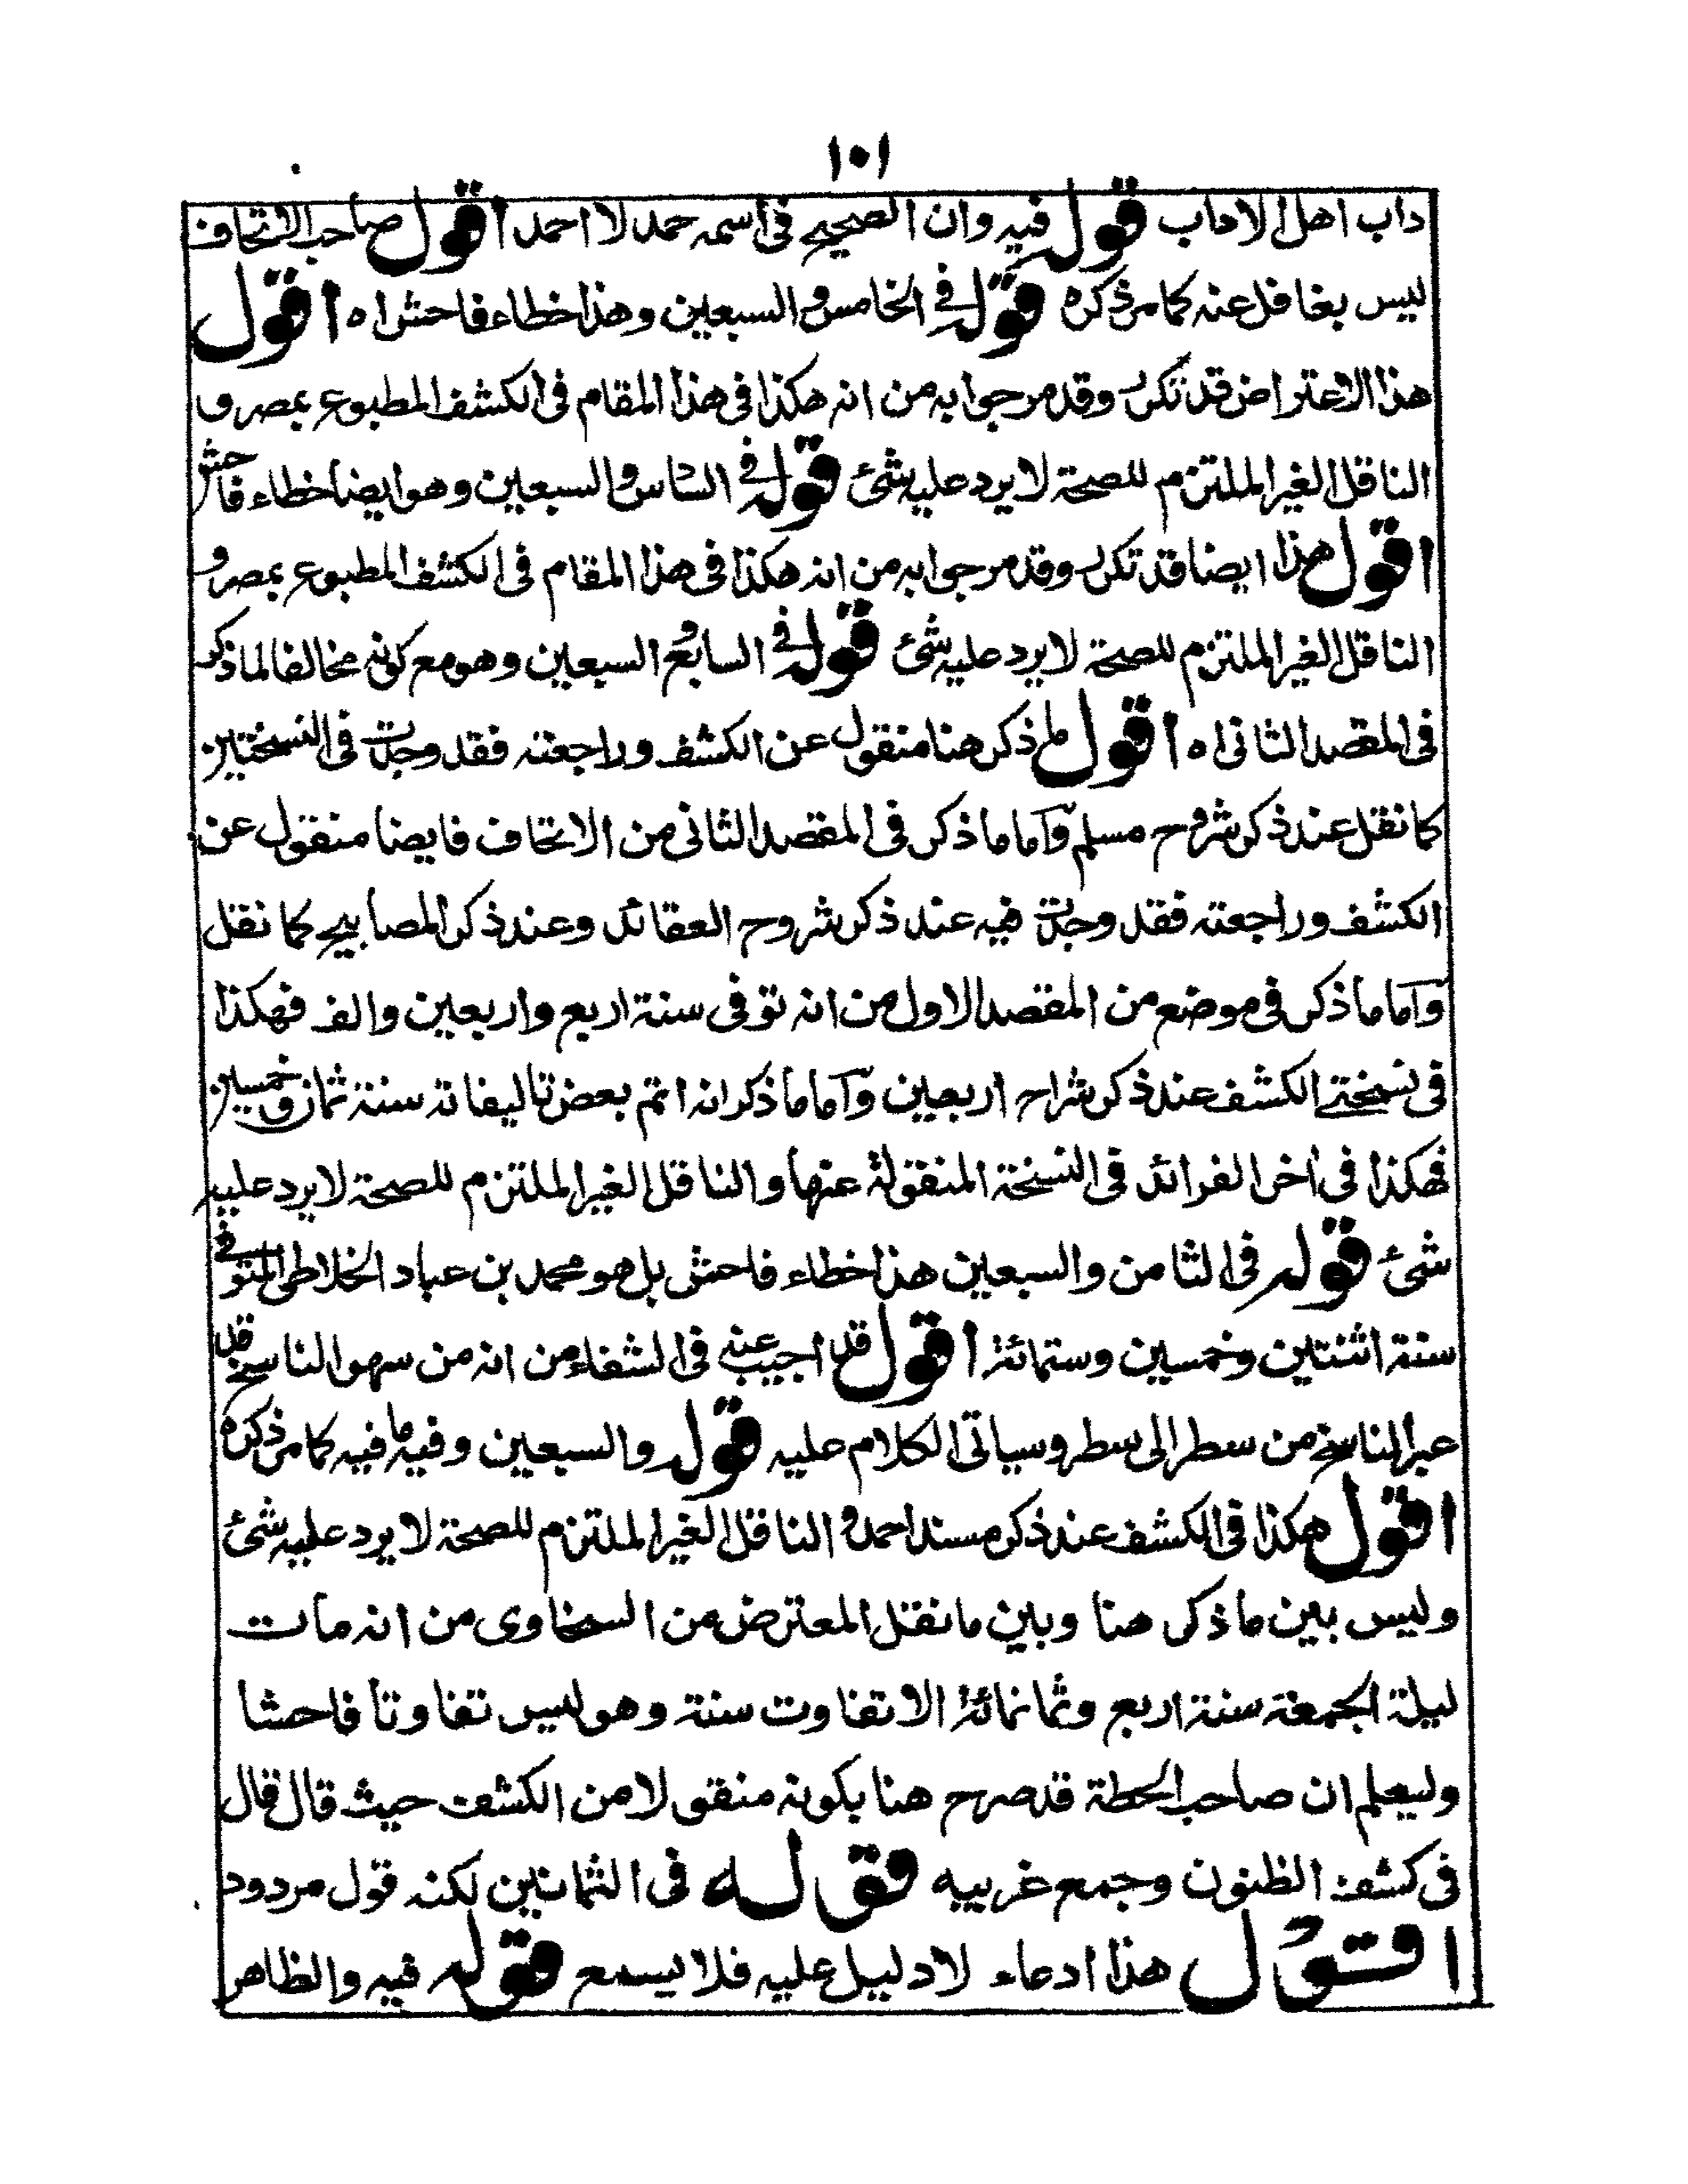 ١٠١
داب اهل الاداب قوله فيه وان الصحيح فى اسمه حمد لا احمد اقول صاحب الاتحاف
ليس بغافل عنه كما مر ذكره قوله فى الخامس والسبعين وهذا خطاء فاحش اه اقول
هذا الاعتراض قد تكرر وقد مر جوابه من انه هكذا فى هذا المقام فى الكشف المطبوع بمصر و
الناقل الغير الملتزم للصحة لا يرد عليه شئ قوله فى السادس والسبعين وهو ايضا خطاء فاحش
اقول هذا ايضا قد تكرر وقد مر جوابه من انه هكذا فى هذا المقام فى الكشف المطبوع بمصر و
الناقل الغير الملتزم للصحة لا يرد عليه شئ قوله فى السابع والسبعين وهو مع كونه مخالفا لما ذكر
فى المقصد الثانى اه اقول ما ذكر هنا منقول عن الكشف وراجعته فقد وجدت فى النسختين
كما نقل عند ذكر شروح مسلم واما ما ذكر فى المقصد الثانى من الاتحاف فايضا منقول عن
الكشف وراجعته فقد وجدت فيه عند ذكر شروح العقائد وعند ذكر المصابيح كما نقل
واما ما ذكر فى موضع من المقصد الاول من انه توفى سنة اربع واربعين والف فهكذا
فى نسختى الكشف عند ذكر شراح اربعين واما ما ذكر انه اتم بعض تاليفاته سنة ثمان وخمسين
فهكذا فى اخر الفرائد فى النسخة المنقولة عنها والناقل الغير الملتزم للصحة لا يرد عليه
شئ قوله فى الثامن والسبعين هذا خطاء فاحش بل هو محمد بن عباد الخلاطى المتوفى
سنة اثنتين وخمسين وستمائة اقول قد اجيب عنه فى الشفاء من انه من سهو الناسخ قد
عبر الناسخ من سطر الى سطر وسياتى الكلام عليه قوله والسبعين وفيه ما فيه كما مر ذكره
اقول هكذا فى الكشف عند ذكر مسند احمد و الناقل الغير الملتزم للصحة لا يرد عليه شئ
وليس بين ما ذكر هنا وبين ما نقل المعترض من السخاوى من انه مات
ليلة الجمعة سنة اربع وثمانمائة الا تفاوت سنة وهو ليس تفاوتا فاحشا
وليعلم ان صاحب الحطة قد صرح هنا بكونه منقولا من الكشف حيث قال قال
فى كشف الظنون وجمع غريبه قوله فى الثمانين لكنه قول مردود
اقول هذا ادعاء لا دليل عليه فلا يسمع قوله فيه والظاهر